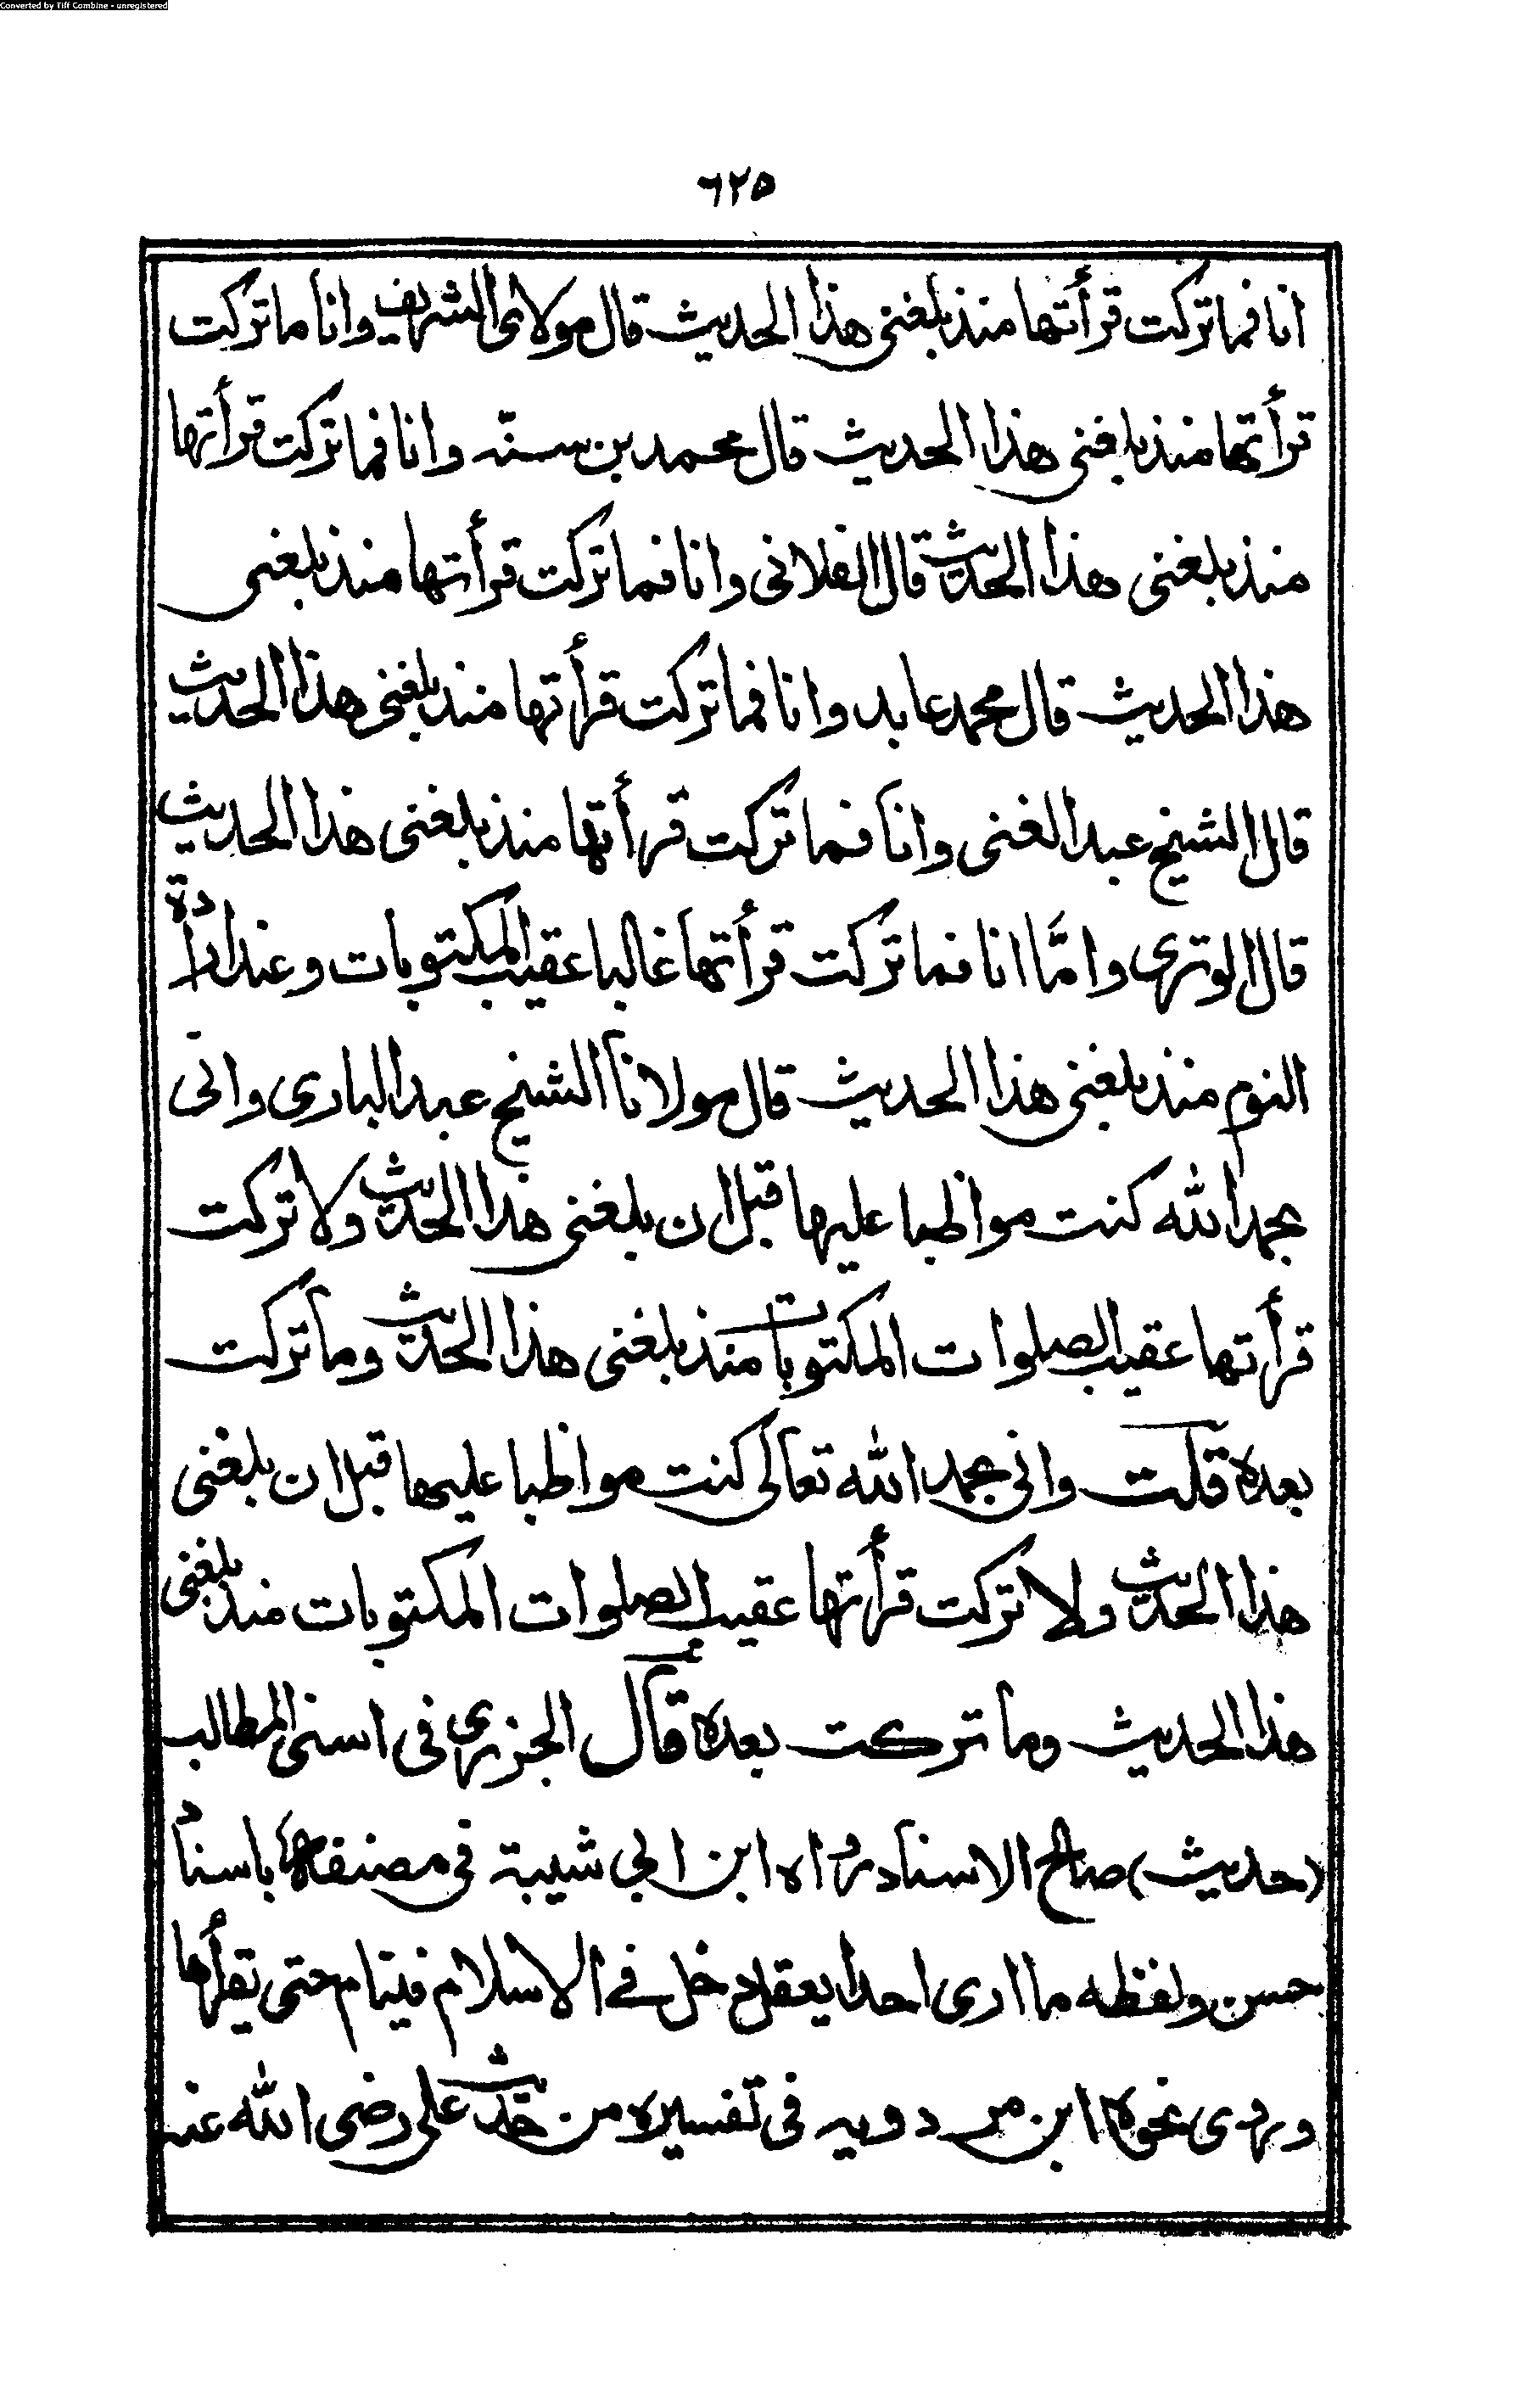 Converted by Tiff Combine - unregistered
٦٢٥
انا فما تركت قرأتها منذ بلغنى هذا الحديث قال مولاى الشريف وانا ما تركت
قرأتها منذ بلغنى هذا الحديث قال محمد بن سنة وانا فما تركت قرأتها
منذ بلغنى هذا الحديث قال الفلانى وانا فما تركت قرأتها منذ بلغنى
هذا الحديث قال محمد عابد وانا فما تركت قرأتها منذ بلغنى هذا الحديث
قال الشيخ عبد الغنى وانا فما تركت قرأتها منذ بلغنى هذا الحديث
قال الوترى وامّا انا فما تركت قرأتها غالبا عقيب المكتوبات وعند ارادة
النوم منذ بلغنى هذا الحديث قال مولانا الشيخ عبد البارى وانى
بحمد الله كنت مواظبا عليها قبل ان بلغنى هذا الحديث ولا تركت
قرأتها عقيب الصلوات المكتوبات منذ بلغنى هذا الحديث وما تركت
بعده قلت وانى بحمد الله تعالى كنت مواظبا عليها قبل ان بلغنى
هذا الحديث ولا تركت قرأتها عقيب الصلوات المكتوبات منذ بلغنى
هذا الحديث وما تركت بعده قال الجزرى فى اسنى المطالب
(حديث) صالح الاسناد رواه ابن ابى شيبة فى مصنفه باسناد
حسن ولفظه ما ارى احدا يعقل دخل فى الاسلام فينام حتى يقرأها
وروى نحوه ابن مردويه فى تفسيره من حديث على رضى الله عنه